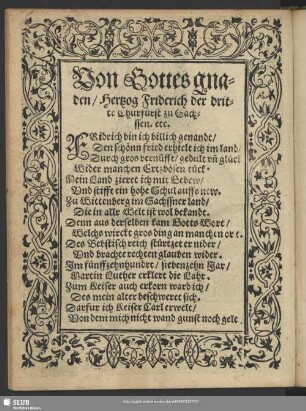 Von Gottes gna-
den / Hertzog Friderich der drit-
te Churfürst zu Sach-
ssen. etc.
FRidrich bin ich billich genandt /
Den schönn fried erhielt ich im land /
Durch gros vernüfft / gedult vñ glück
Wider manchen Ertzbösen tück.
Mein Land zieret ich mit Gebew /
Und stifft ein hohe Schul auffs new.
Zu Wittenberg im Sachssner land /
Die in aller Welt ist wol bekandt.
Denn aus derselben kam Gotts Wort /
Welchs wirckt gros ding an manchen ort.
Des Bebstisch reich stürtzet er nider /
Und brachte rechten glauben wider.
Im fünffzehnhundert / siebenzehn Jar /
Martin Luther erklert die Lahr.
Zum Keiser auch erkorn ward ich /
Des mein alter beschweret sich.
Darfur ich Keiser Carl erwelt /
Von dem mich nicht wand gunst noch gelt.
SLUB